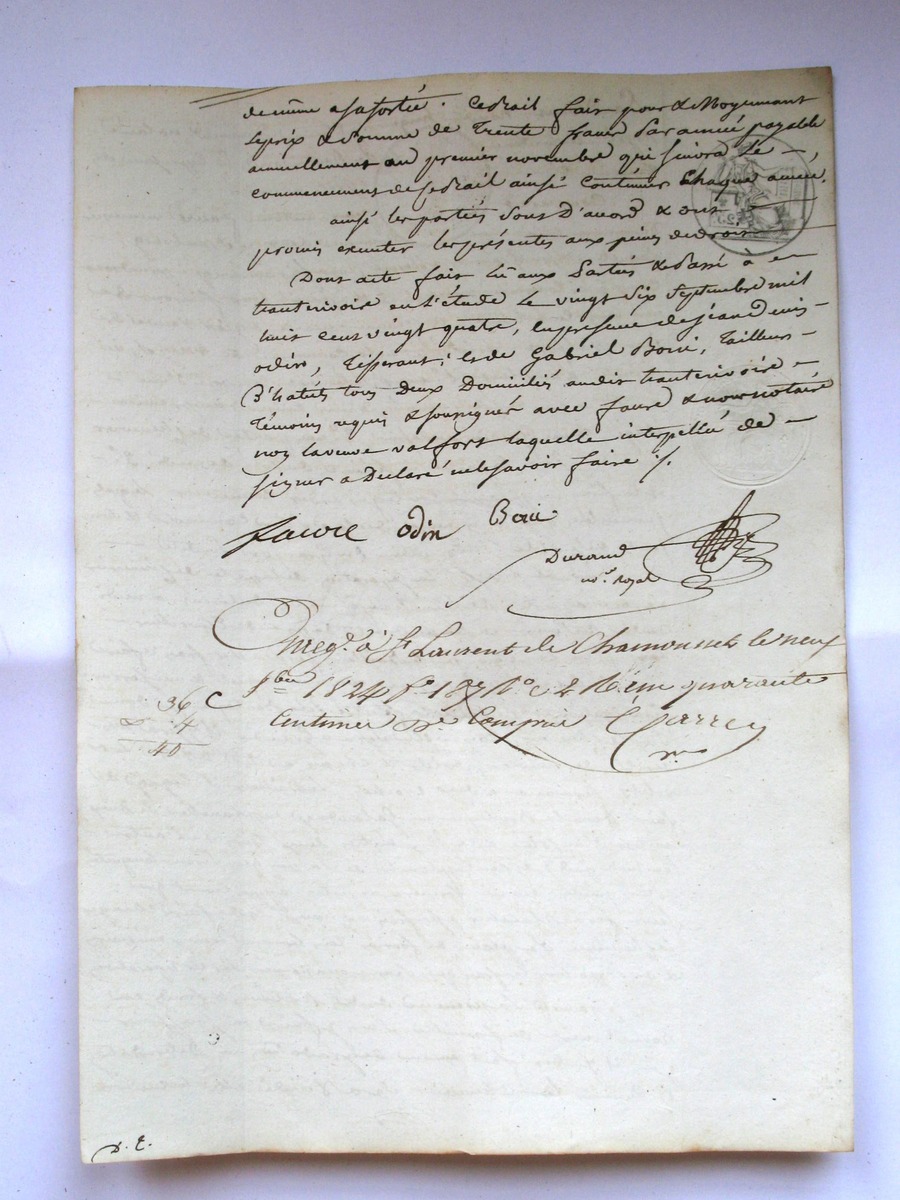 de même a sa sortie. Ce Bail fait pour & Moyennant
le prix & Somme de Trente francs Par année payable
annuellement au premier novembre qui suivra le
commencement de ce Bail ainsi continuer Chaque année,
ainsi les parties sont D'acord & ont
promis executer les présentes aux peines de droit
Dont acte fait lu aux Parties & Passé à
hauterivoire en l'étude le vingt Six Septembre mil
huit cent vingt quatre, en presence de Jean Denis
odin, Tisserant, et de Gabriel Boiri, Tailleur
D'habits tous Deux Domiciliés audit hauterivoire
Témoins requis & soussignés avec faure & nous notaire
non la veuve valfort laquelle interpellée de
signer a Declaré ne le savoir faire ./.
faure odin Boiri
Durand
no.re royal
Enreg.é à St Laurent de Chamousset le neuf
1824 f.o 187 R.o C 2 Reçu quarante
36 C
4
40
Centimes D.me Compris
D. E.